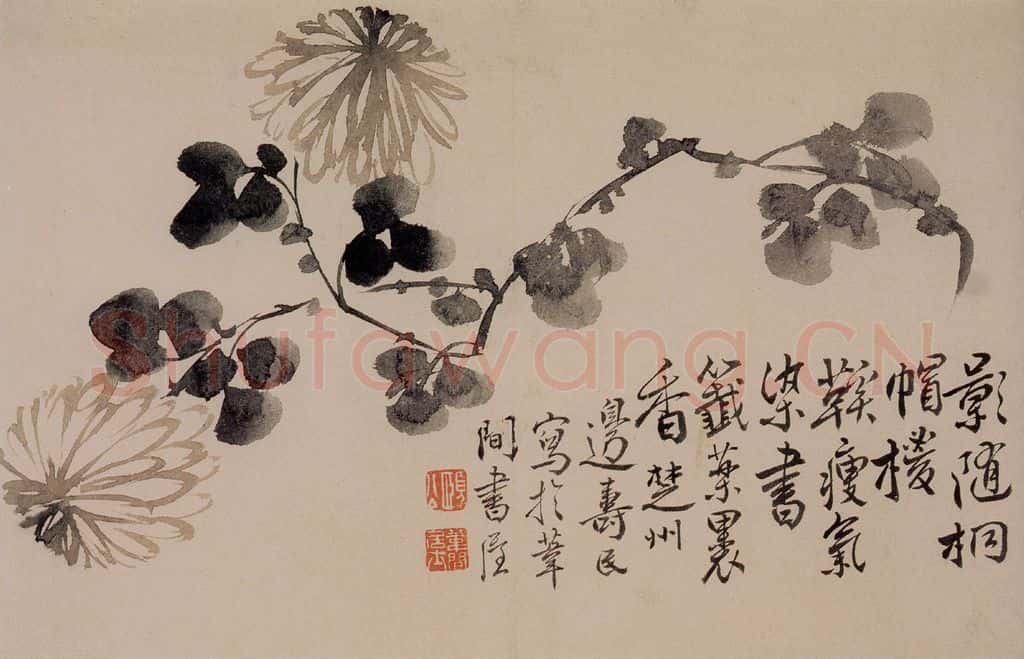 影随桐
帽椶
鞵瘦氣
染書
籤藥裹
香楚州
邊壽民
寫於葦
間書屋
頤公
Shufawang.CN